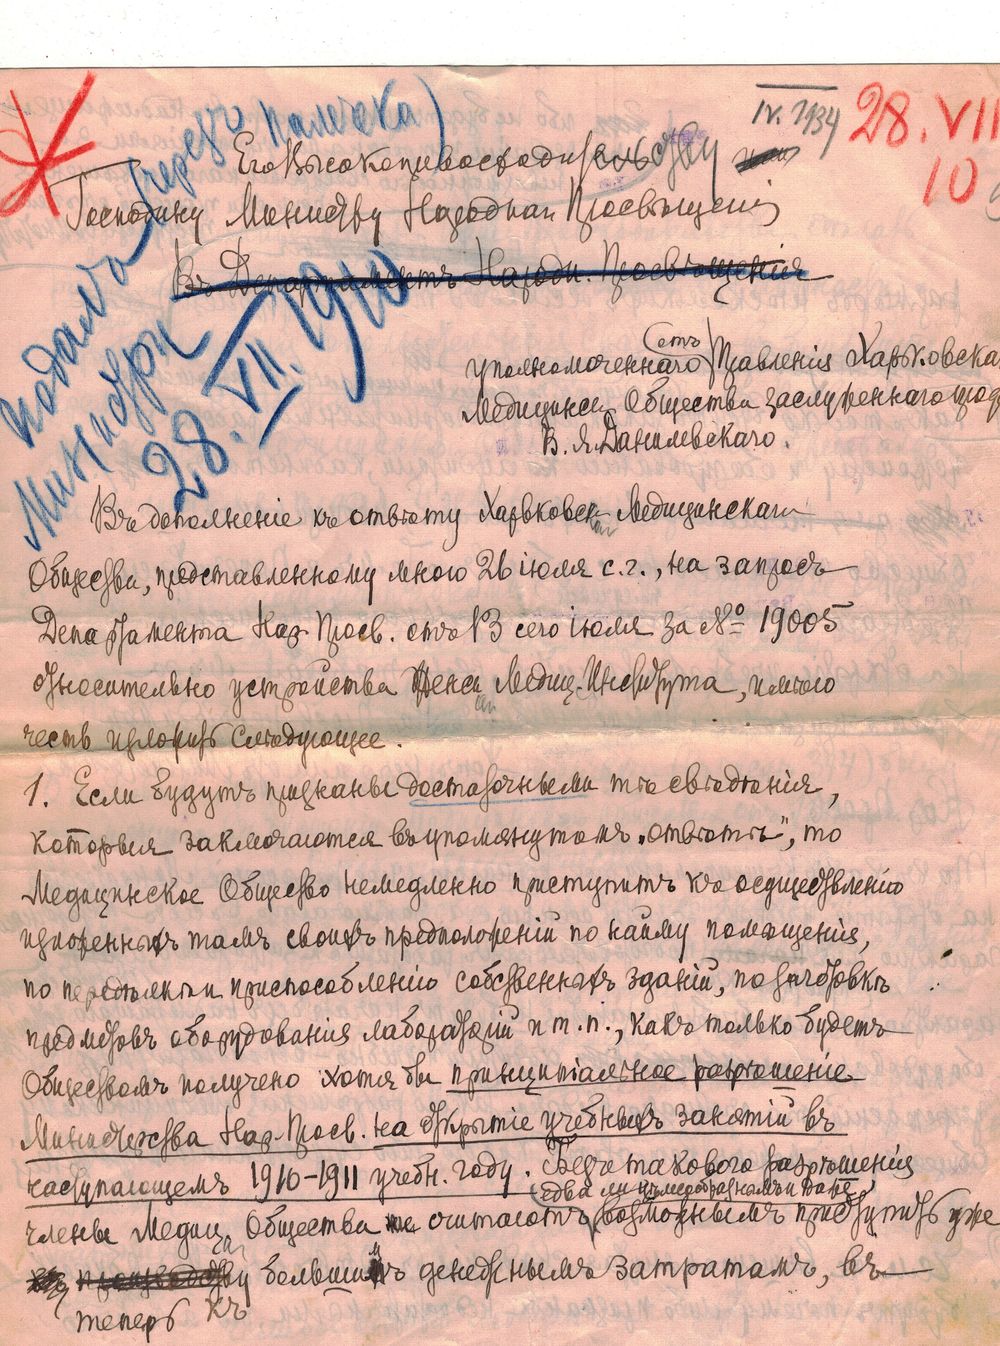 IV. 1934
28. VII
10
Подано (через Палечека)
Министру
28. VII. 1910
Его Высокопревосходительству
Господину Министру Народнаго Просвѣщенія
Въ Департаментъ Народн. Просвѣщенія
уполномоченнаго отъ Правленія Харьковскаго
Медицинск. Общества заслуженнаго проф.
В. Я. Данилевскаго.
Въ дополненіе къ отвѣту Харьковскаго Медицинскаго
Общества, представленному мною 26 іюля с.г., на запросъ
Департамента Нар. Просв. отъ 13 сего іюля за № 19005
относительно устройства Женскаго Медиц. Института, имѣю
честь изложить слѣдующее.
1. Если будутъ признаны достаточными тѣ свѣдѣнія,
которыя заключаются въ упомянутомъ „отвѣтѣ", то
Медицинское Общество немедленно приступитъ къ осуществленію
изложенныхъ тамъ своихъ предположеній по найму помѣщенія,
по передѣлкѣ и приспособленію собственныхъ зданій, по заготовкѣ
предметовъ оборудованія лабораторій и т. п., какъ только будетъ
Обществомъ получено хотя бы принципіальное разрѣшеніе
Министерства Нар. Просв. на открытіе учебныхъ занятій въ
наступающемъ 1910-1911 учебн. году. Безъ такового разрѣшенія
едва ли цѣлесообразнымъ и даже
члены Медиц. Общества считаютъ возможнымъ приступить уже
большимъ денежнымъ затратамъ, въ
теперь къ